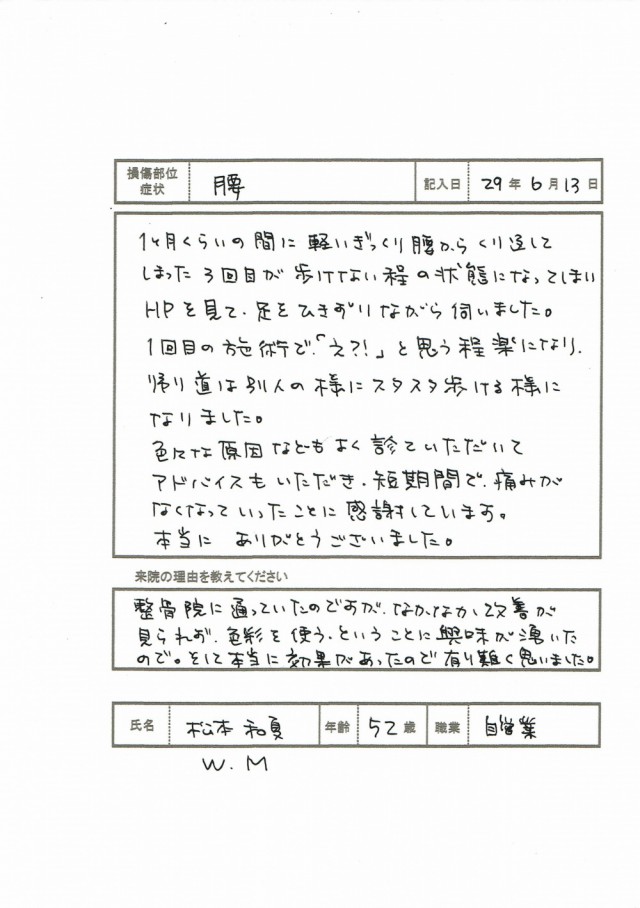 損傷部位 症状 腰 記入日 29年6月13日
1ヶ月くらいの間に軽いぎっくり腰からくり返して
しまった3回目が歩けない程の状態になってしまい
HPを見て、足をひきずりながら伺いました。
1回目の施術で、「え?!」と思う程楽になり、
帰り道は別人の様にスタスタ歩ける様に
なりました。
色々な原因などもよく診ていただいて
アドバイスもいただき、短期間で、痛みが
なくなっていったことに感謝しています。
本当に ありがとうございました。
来院の理由を教えてください
整骨院に通っていたのですが、なかなか改善が
見られず、色彩を使う、ということに興味が湧いた
ので。そして本当に効果があったので有り難く思いました。
氏名 松本 和夏 年齢 52歳 職業 自営業
W.M